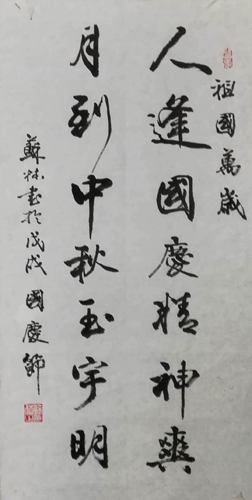 祖國萬歲
人逢國慶精神爽
月到中秋玉宇明
蘇林書於戊戌國慶節